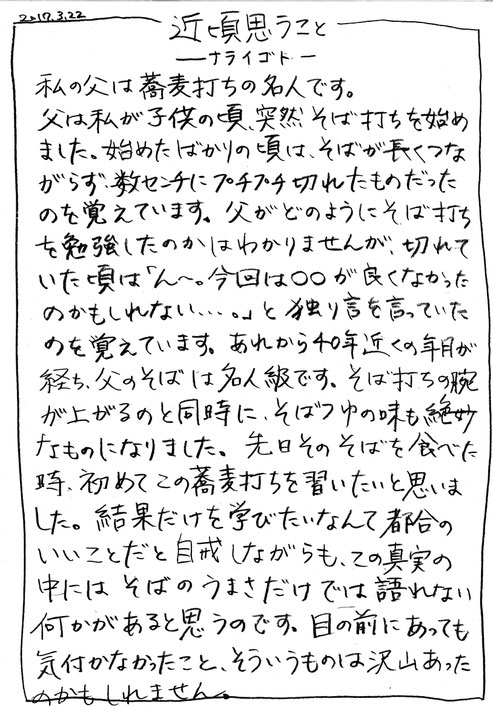 2017.3.22
近頃思うこと
ーナライゴトー
私の父は蕎麦打ちの名人です。
父は私が子供の頃、突然そば打ちを始め
ました。始めたばかりの頃は、そばが長くつな
がらず、数センチにプチプチ切れたものだった
のを覚えています。父がどのようにそば打ち
を勉強したのかはわかりませんが、切れて
いた頃は「ん〜。今回は○○が良くなかった
のかもしれない...。」と独り言を言っていた
のを覚えています。あれから40年近くの年月が
経ち、父のそばは名人級です。そば打ちの腕
が上がるのと同時に、そばつゆの味も絶妙
なものになりました。先日そのそばを食べた
時、初めてこの蕎麦打ちを習いたいと思いま
した。結果だけを学びたいなんて都合の
いいことだと自戒しながらも、この真実の
中にはそばのうまさだけでは語れない
何かがあると思うのです。目の前にあっても
気付かなかったこと、そういうものは沢山あった
のかもしれません。